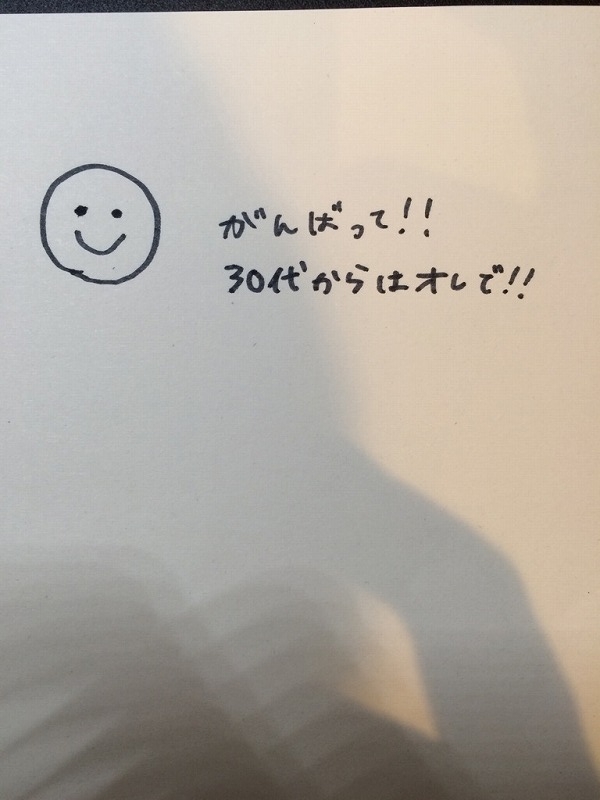 がんばって!!
30代からはオレで!!